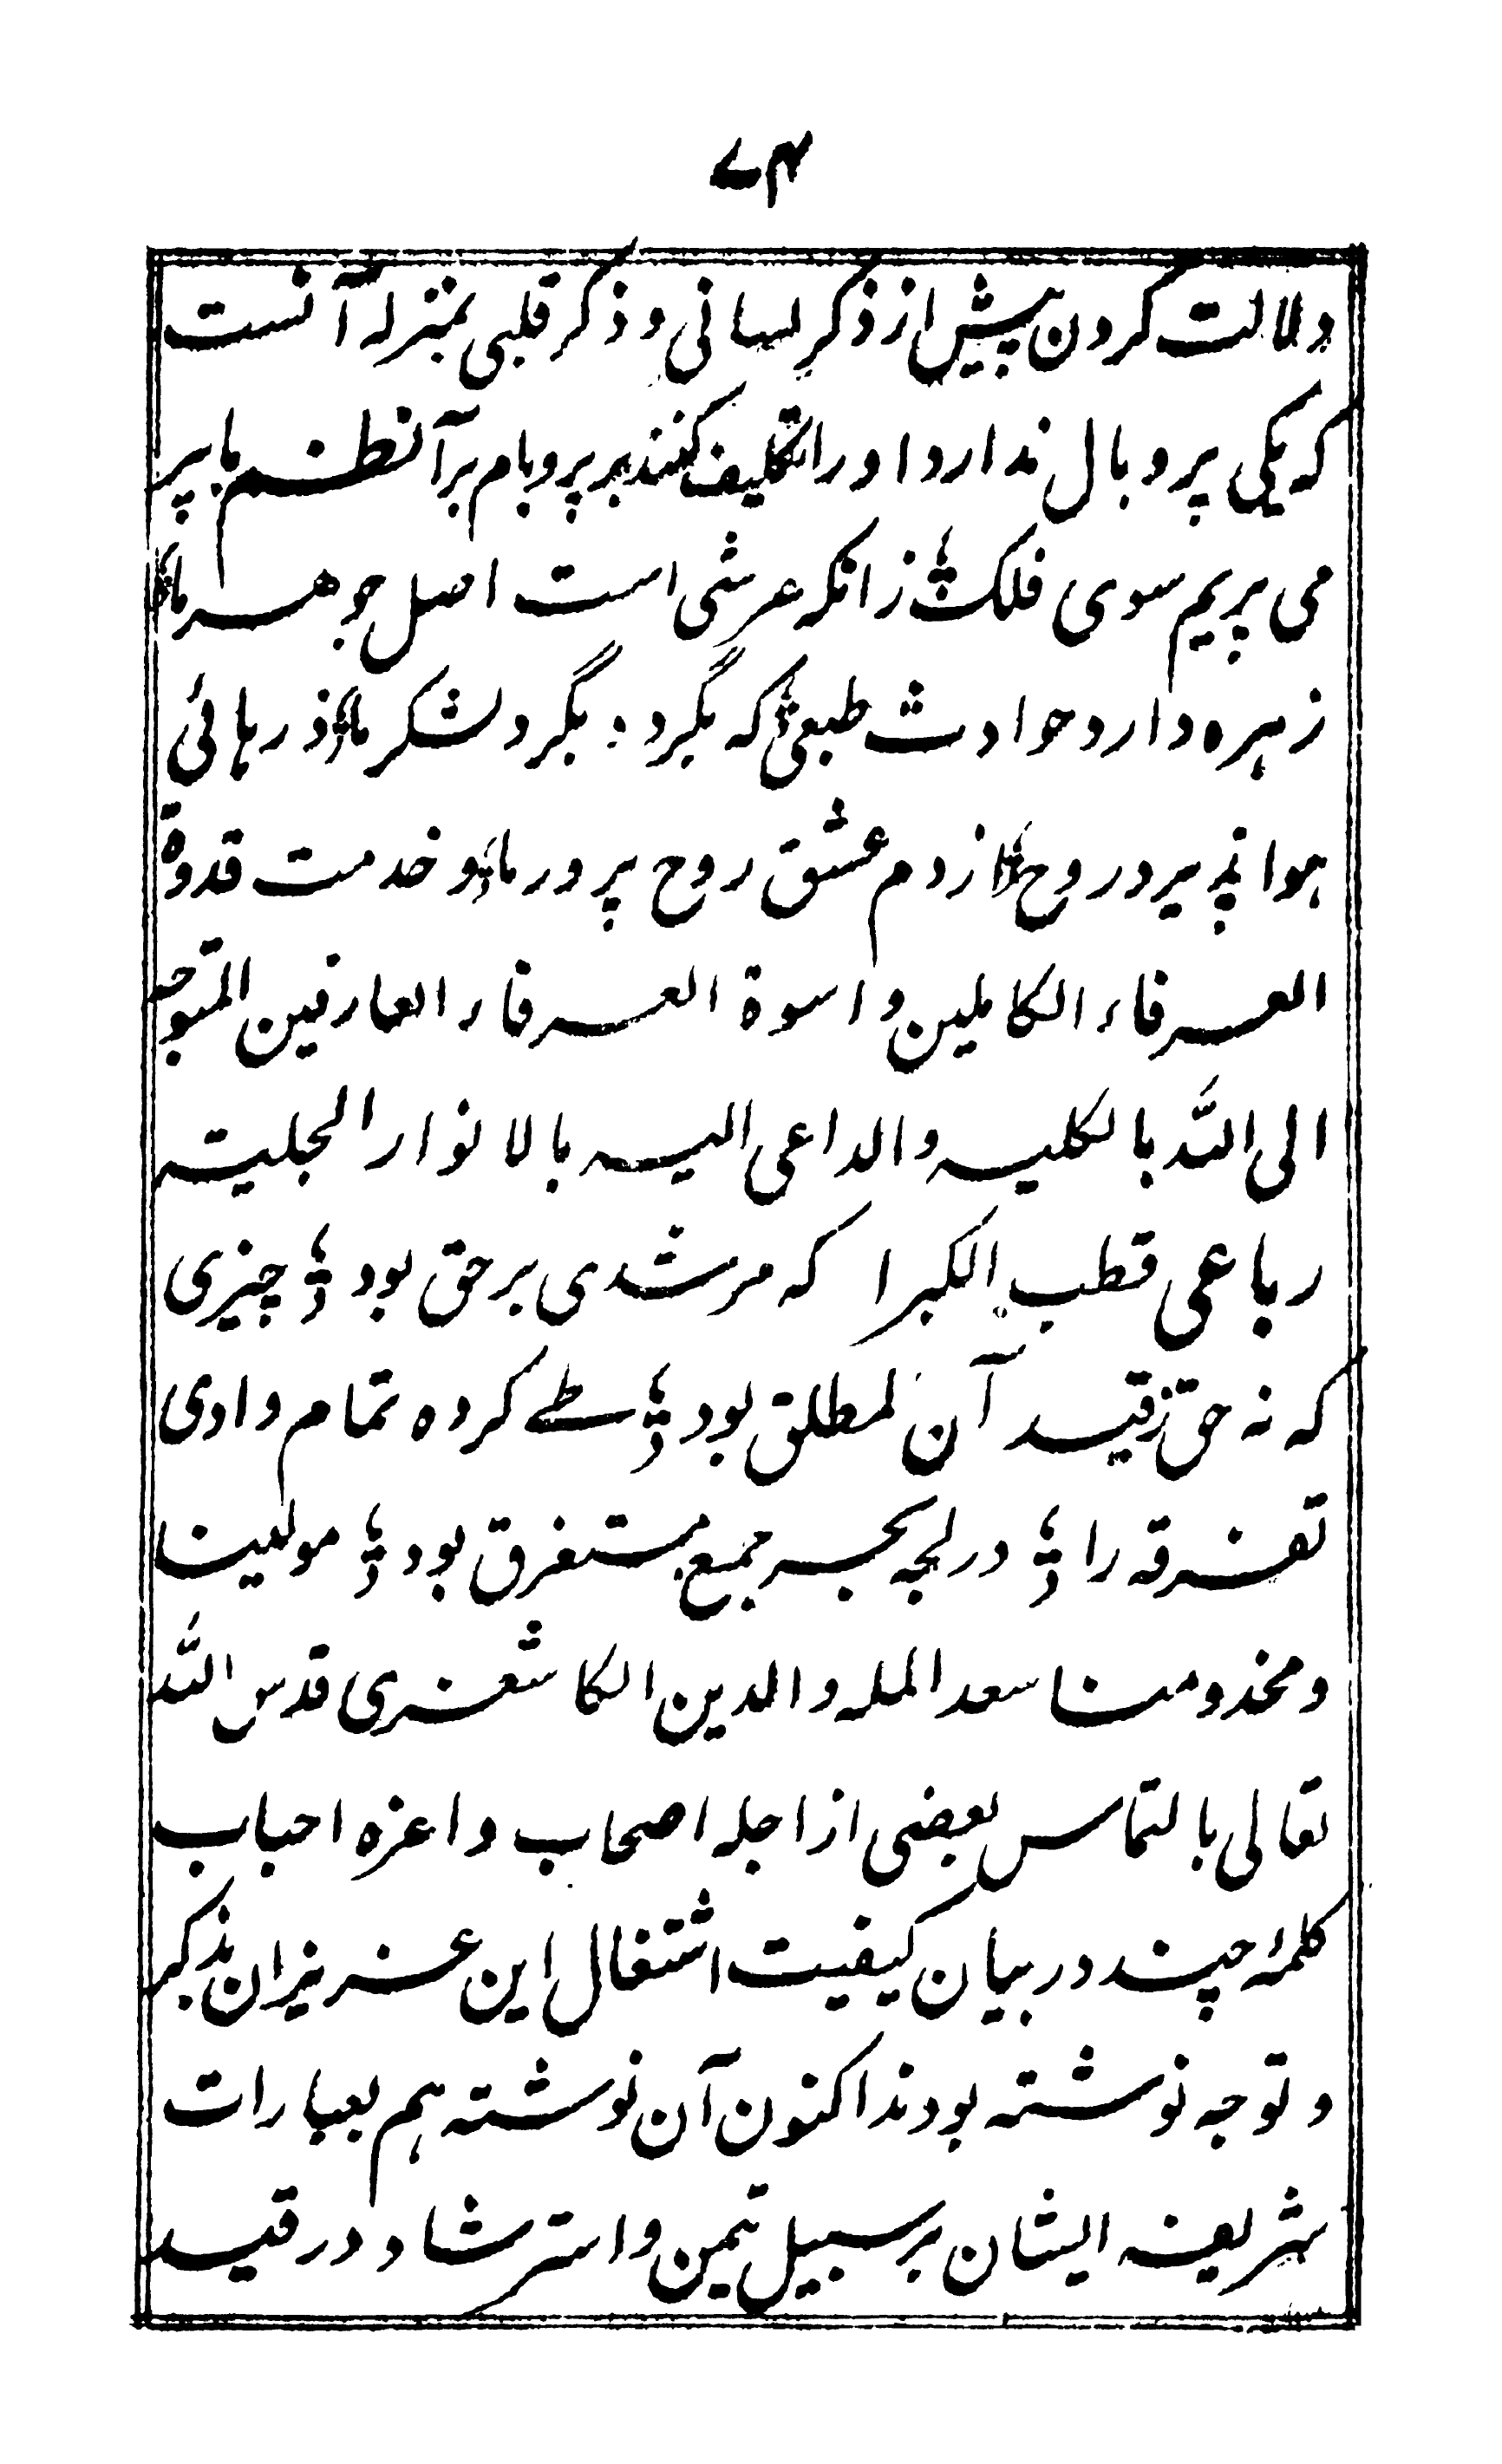 ۷۴
دلالت کردن پیش از ذکر لسانی و ذکر قلبی بمنزله آنست
که یکی پر و بال ندارد اورا تکلیف کنند بر پر و بام بر آ نظم ما بپر
می پریم سوی فلک ؛ زانکه عرشی است اصل جوهر ما ؛
زهره دارد حوادث طبعی ؛ که بگردد بگرد لشکر ما ؛ ذرهائی
هوا پذیرد روح ؛ از دم عشق روح پرور ما ؛ و خدمت قدوة
العرفاء الکاملین و اسوة العرفاء العارفین المتوجه
الی الله بالکلیه والداعی الیه بالانوار الجلیته
رباعی قطب الکبرا که مرشدی بر حق بود ؛ چیزی
که نه حق زقید آن مطلق بود ؛ طے کرده تمام وادی
تفرقه را ؛ در لجه بحر جمع مستغرق بود ؛ مولینا
و مخدومنا سعد المله والدین الکاشغری قدس الله
تعالی بالتماس بعضی از اجله اصحاب و اعزه احباب
کلمهٔ چند در بیان کیفیت اشتغال این عزیزان بذکر
و توجه نوشته بودند اکنون آن نوشته هم بعبارات
شریفه ایشان بر سبیل تیمن و استرشاد در قید